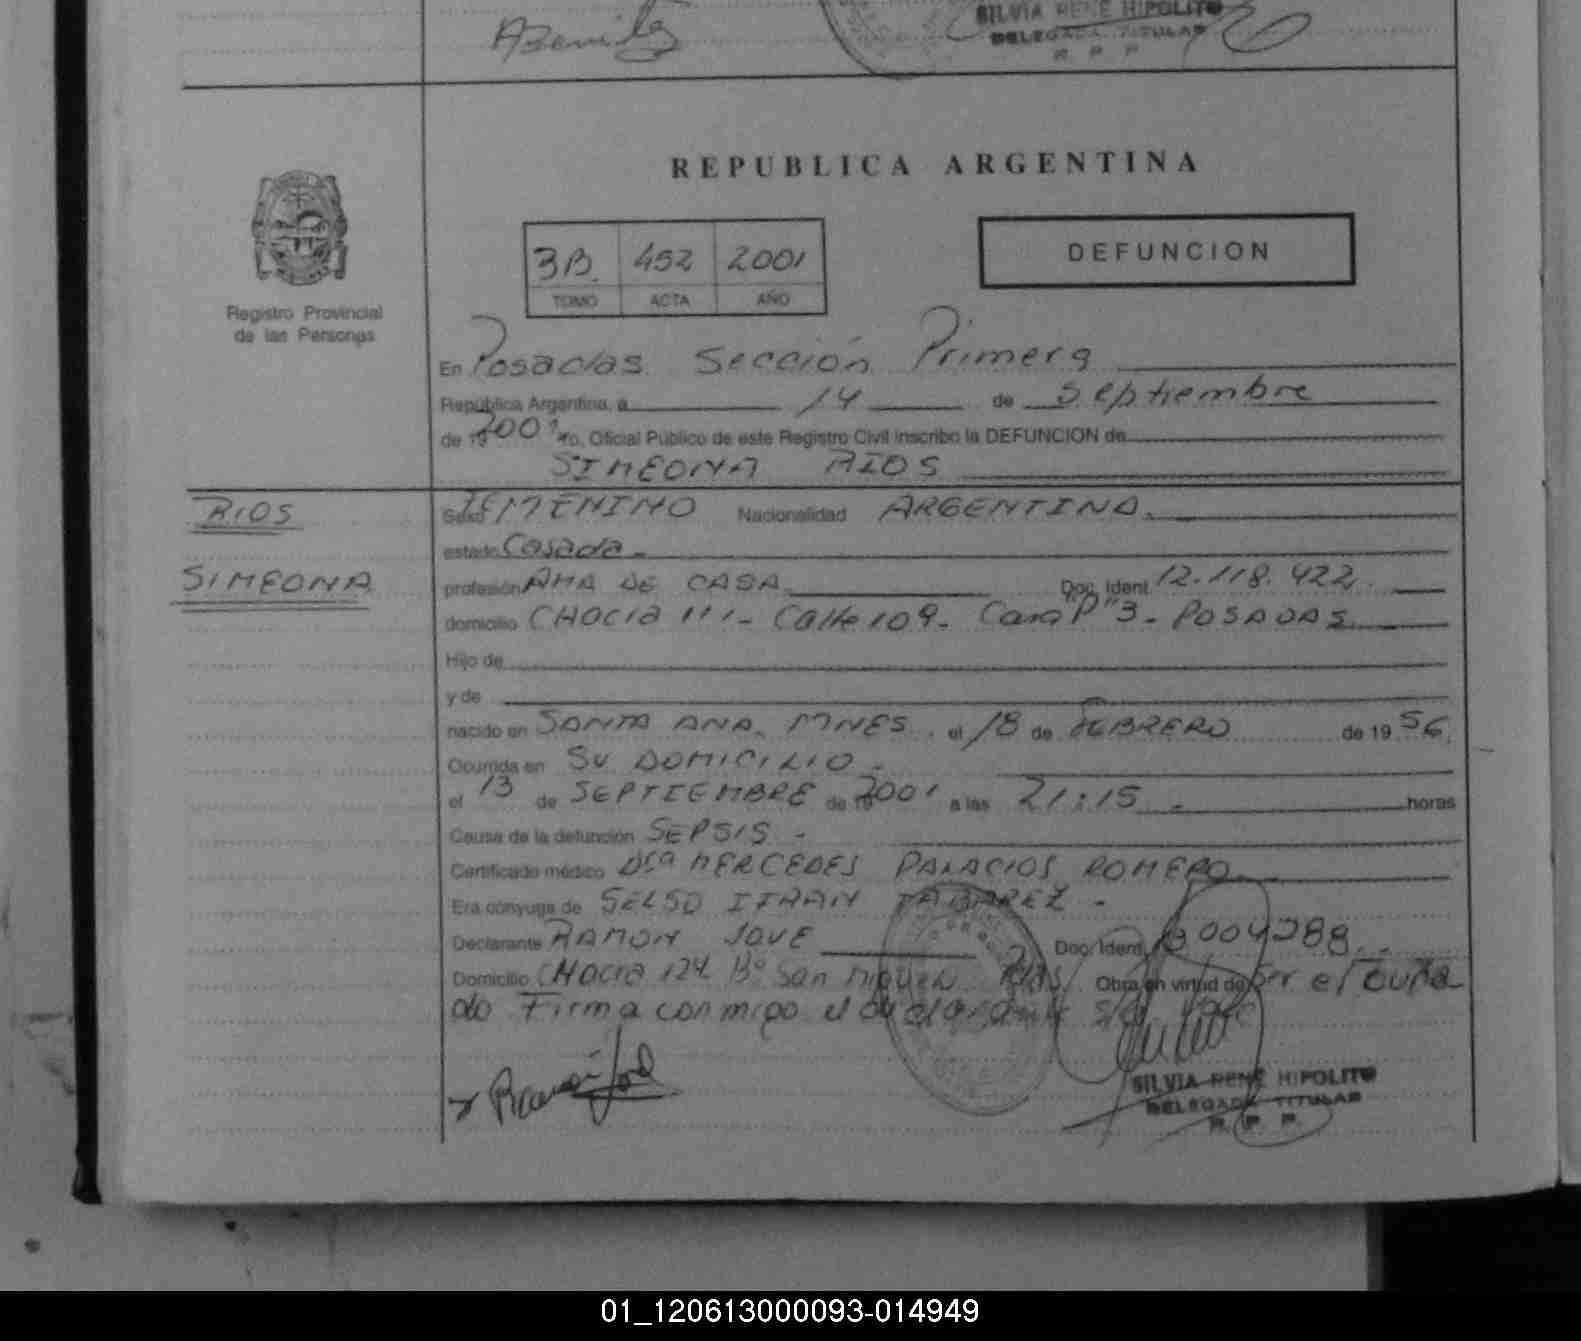 SILVIA RENE HIPOLITO
DELEGADA TITULAR
R. P. P.
REPUBLICA ARGENTINA
3B. 452 2001
TOMO ACTA AÑO
DEFUNCION
Registro Provincial
de las Personas
En Posadas Sección Primera
República Argentina, a 14 de Septiembre
de 19 2001 yo, Oficial Público de este Registro Civil inscribo la DEFUNCION de
SIMEONA RIOS
RIOS
SIMEONA
Sexo FEMENINO Nacionalidad ARGENTINA.
estado Casada.
profesión AMA DE CASA Doc. Ident. 12.118.422
domicilio CHACRA 111 - Calle 109 - Casa Pº 3 - POSADAS
Hijo de
y de
nacido en SANTA ANA, MNES. el 18 de FEBRERO de 19 56
Ocurrida en SU DOMICILIO -
el 13 de SEPTIEMBRE de 19 2001 a las 21:15 - horas
Causa de la defunción SEPSIS -
Certificado médico Dra MERCEDES PALACIOS ROMERO
Era cónyuge de SELSO ITRAN TABAREZ -
Declarante RAMON JOVE Doc. Ident. 13004288
Domicilio CHACRA 124 Bº San Miguel Pdas Obra en virtud de
do Firma conmigo el declarante
SILVIA RENE HIPOLITO
DELEGADA TITULAR
R. P. P.
01_120613000093-014949